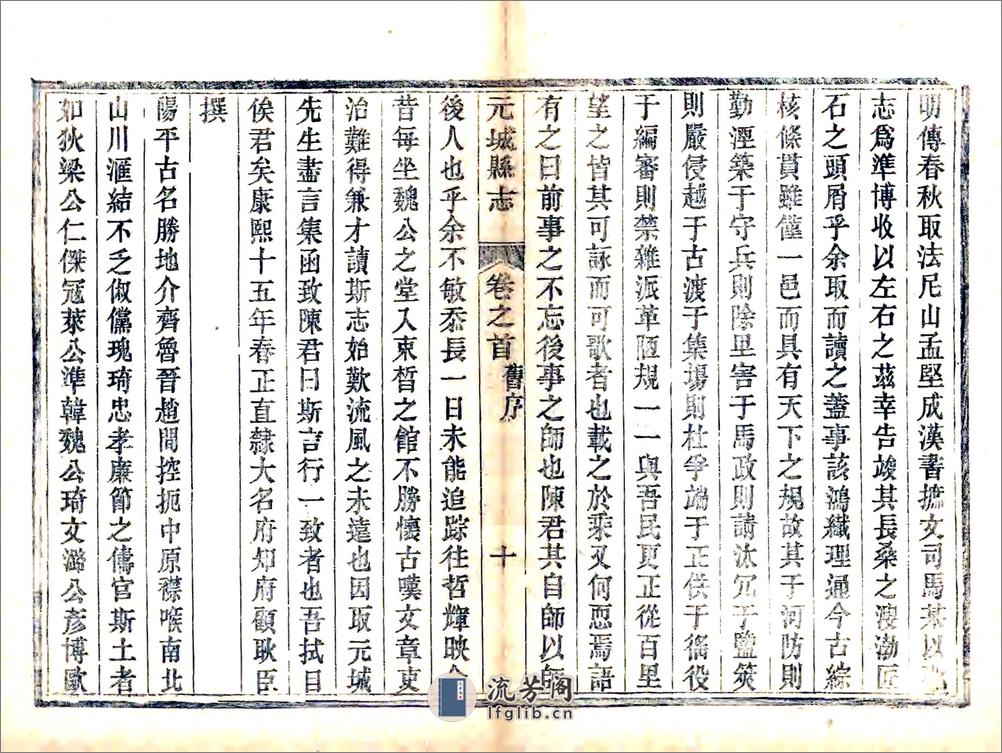 明傳春秋取法尼山孟堅成漢書摭文司馬某以
志爲準博收以左右之茲幸告竣其長桑之溲渤匠
石之頭屑乎余取而讀之蓋事該鴻纖理通今古綜
核條貫雖僅一邑而具有天下之規故其于河防則
勤溼築于守兵則除里害于馬政則請汰冗于鹽筴
則嚴侵越于古渡于集場則杜爭端于正供于徭役
于編審則禁雜派革陋規一一與吾民更正從百里
望之皆其可詠而可歌者也載之於乘又何恧焉語
有之曰前事之不忘後事之師也陳君其自師以師
元城縣志 卷之首 舊序 十
後人也乎余不敏忝長一日未能追踪往哲輝映
昔每坐魏公之堂入束晳之館不勝懷古嘆文章吏
治難得兼才讀斯志始歎流風之未遠也因取元城
先生盡言集函致陳君曰斯言行一致者也吾拭目
俟君矣康熙十五年春正直隸大名府知府顧耿臣
撰
陽平古名勝地介齊魯晉趙間控扼中原襟喉南北
山川滙結不乏俶儻瑰琦忠孝廉節之儔官斯土者
如狄梁公仁傑冦萊公準韓魏公琦文潞公彥博歐
流芳閣
lfglib.cn